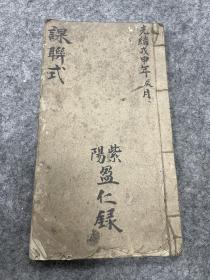 光緒戊申年荔月
課聯式
紫陽盈仁録